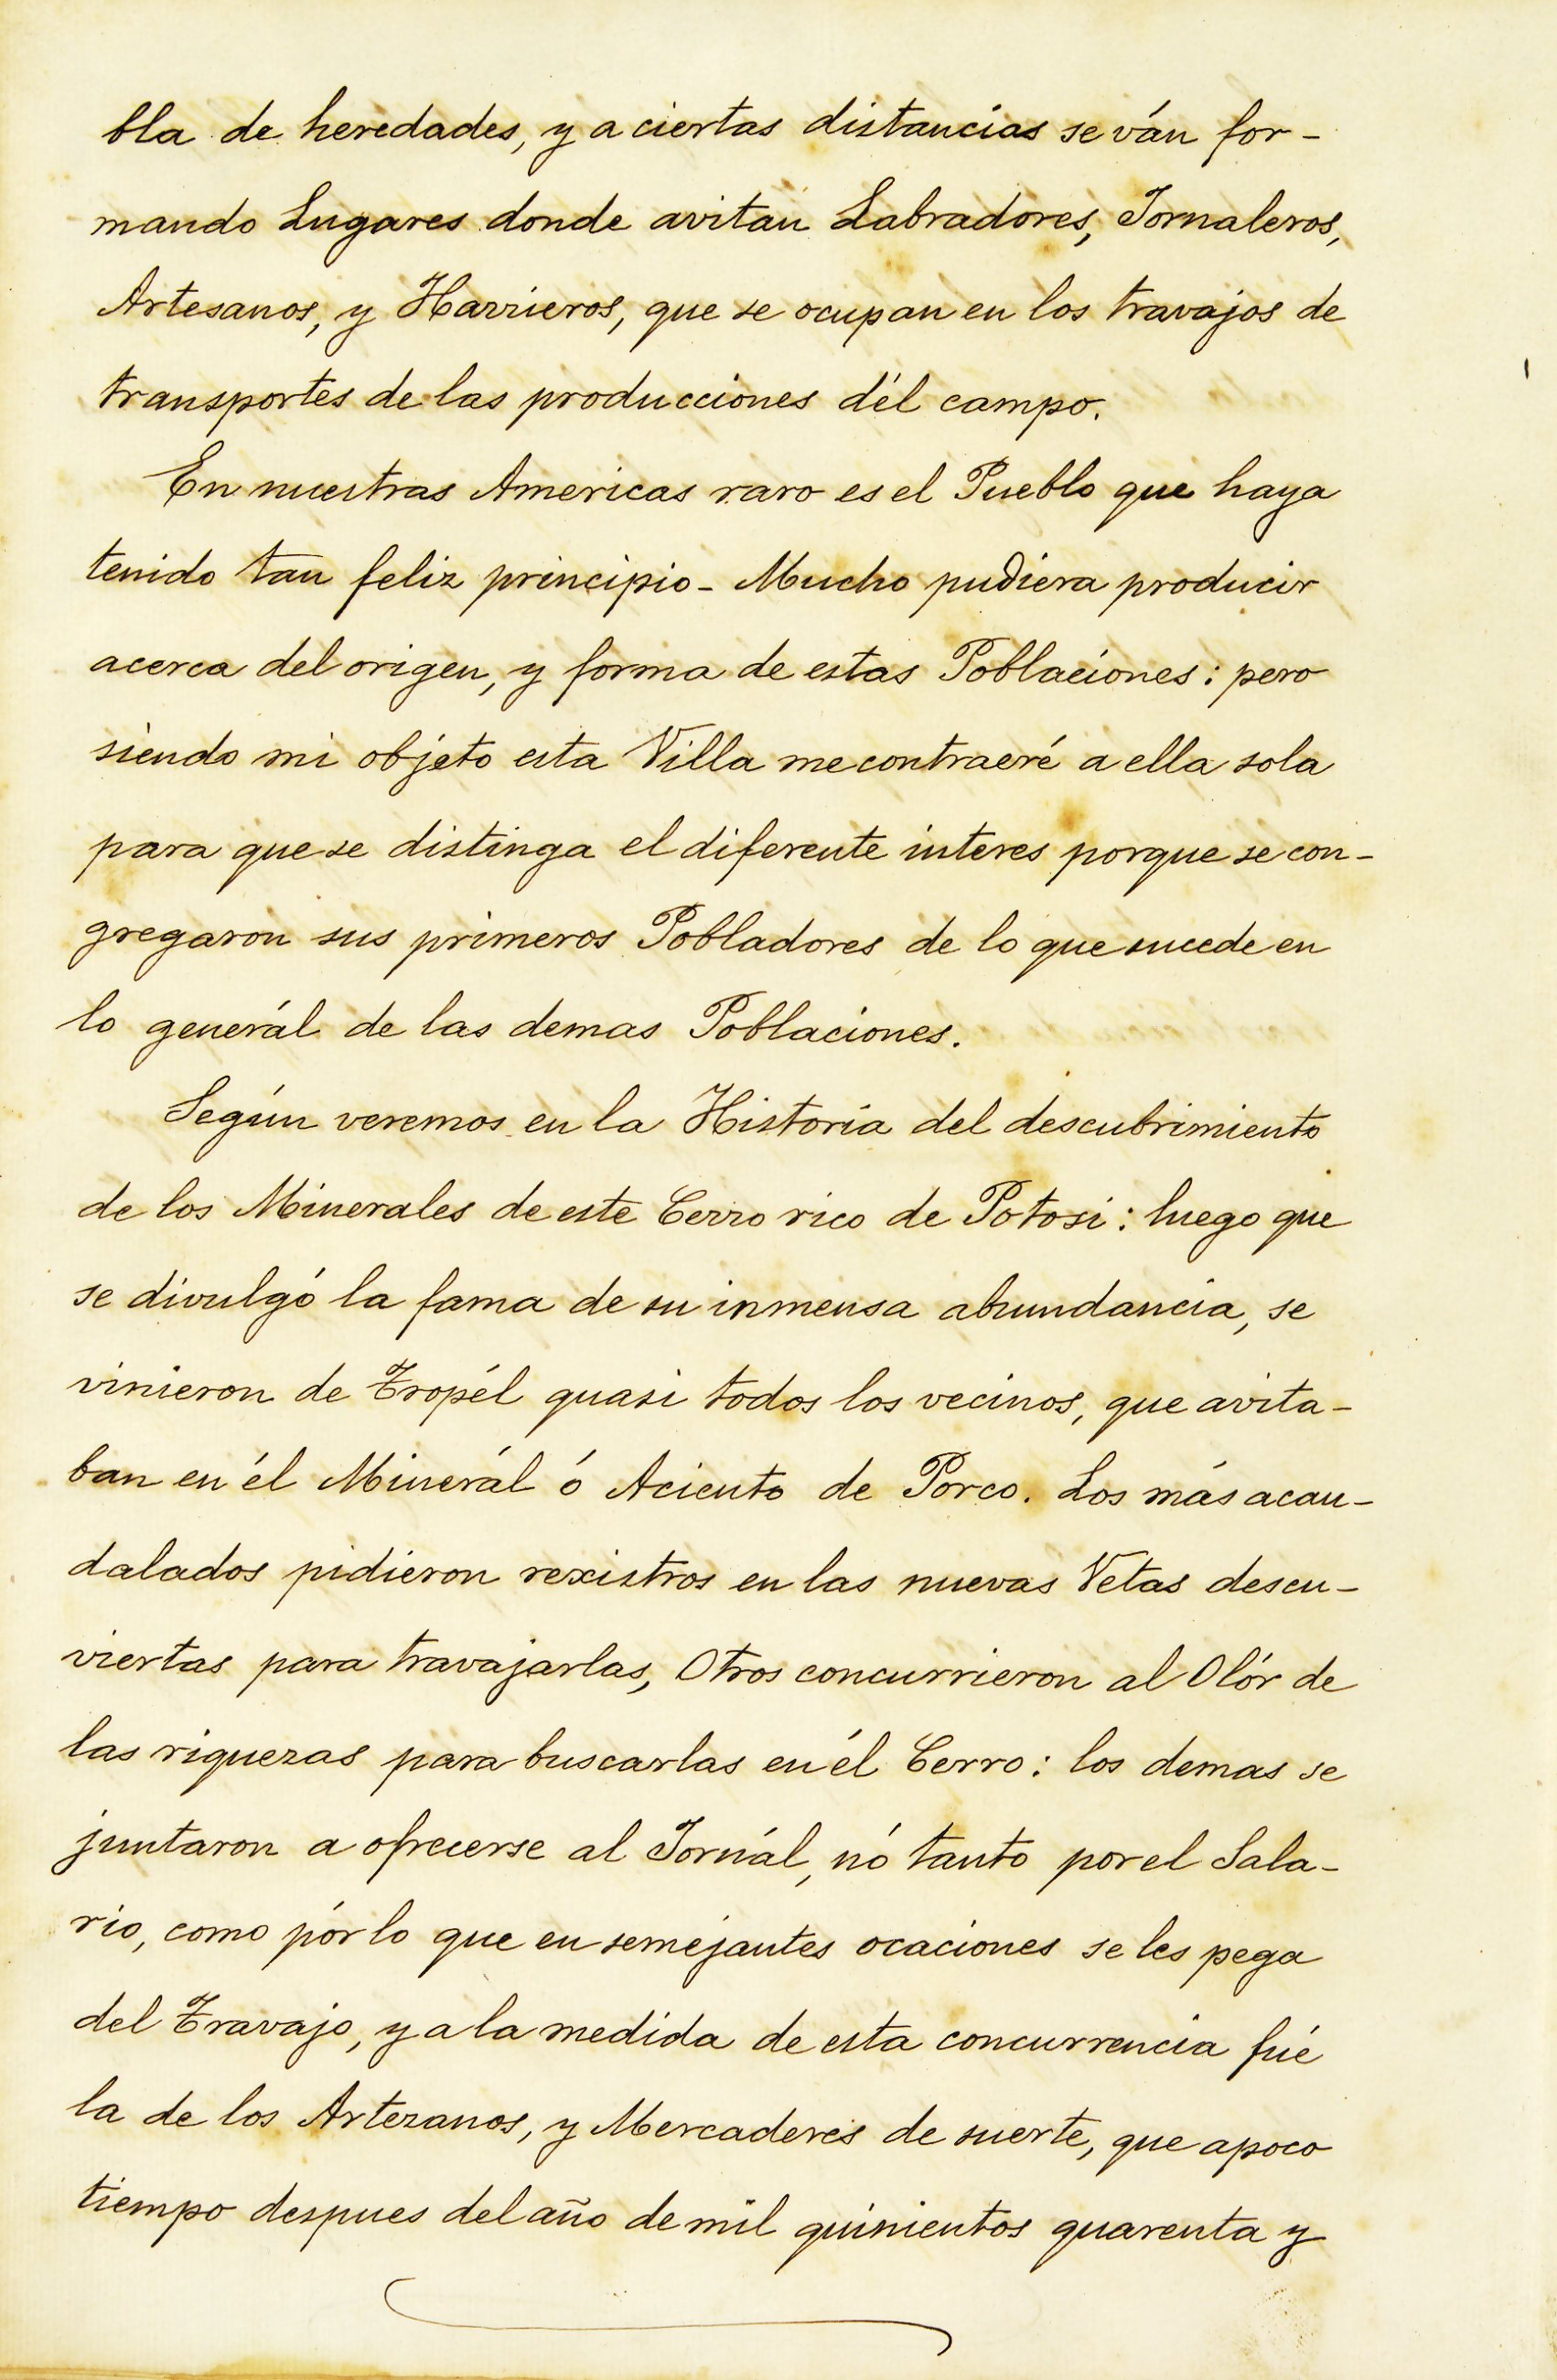 bla de heredades, y a ciertas distancias se ván for-
mando Lugares donde avitan Labradores, Jornaleros,
Artesanos, y Harrieros, que se ocupan en los travajos de
transportes de las producciones dél campo.
En nuestras Americas raro es el Pueblo que haya
tenido tan feliz principio- Mucho pudiera producir
acerca del origen, y forma de estas Poblaciones: pero
siendo mi objeto esta Villa me contraeré a ella sola
para que se distinga el diferente interes porque se con-
gregaron sus primeros Pobladores de lo que sucede en
lo generál de las demas Poblaciones.
Según veremos en la Historia del descubrimiento
de los Minerales de este Cerro rico de Potosi: luego que
se divulgó la fama de su inmensa abundancia, se
vinieron de Tropél quasi todos los vecinos, que avita-
ban en él Minerál ó Aciento de Porco. Los más acau-
dalados pidieron rexistros en las nuevas Vetas descu-
viertas para travajarlas, Otros concurrieron al Olór de
las riquezas para buscarlas en él Cerro: los demas se
juntaron a ofrecerse al Jornál, nó tanto por el Sala-
rio, como pór lo que en semejantes ocaciones se les pega
del Travajo, y a la medida de esta concurrencia fúe
la de los Artezanos, y Mercaderes de suerte, que apoco
tiempo despues del año de mil quinientos quarenta y